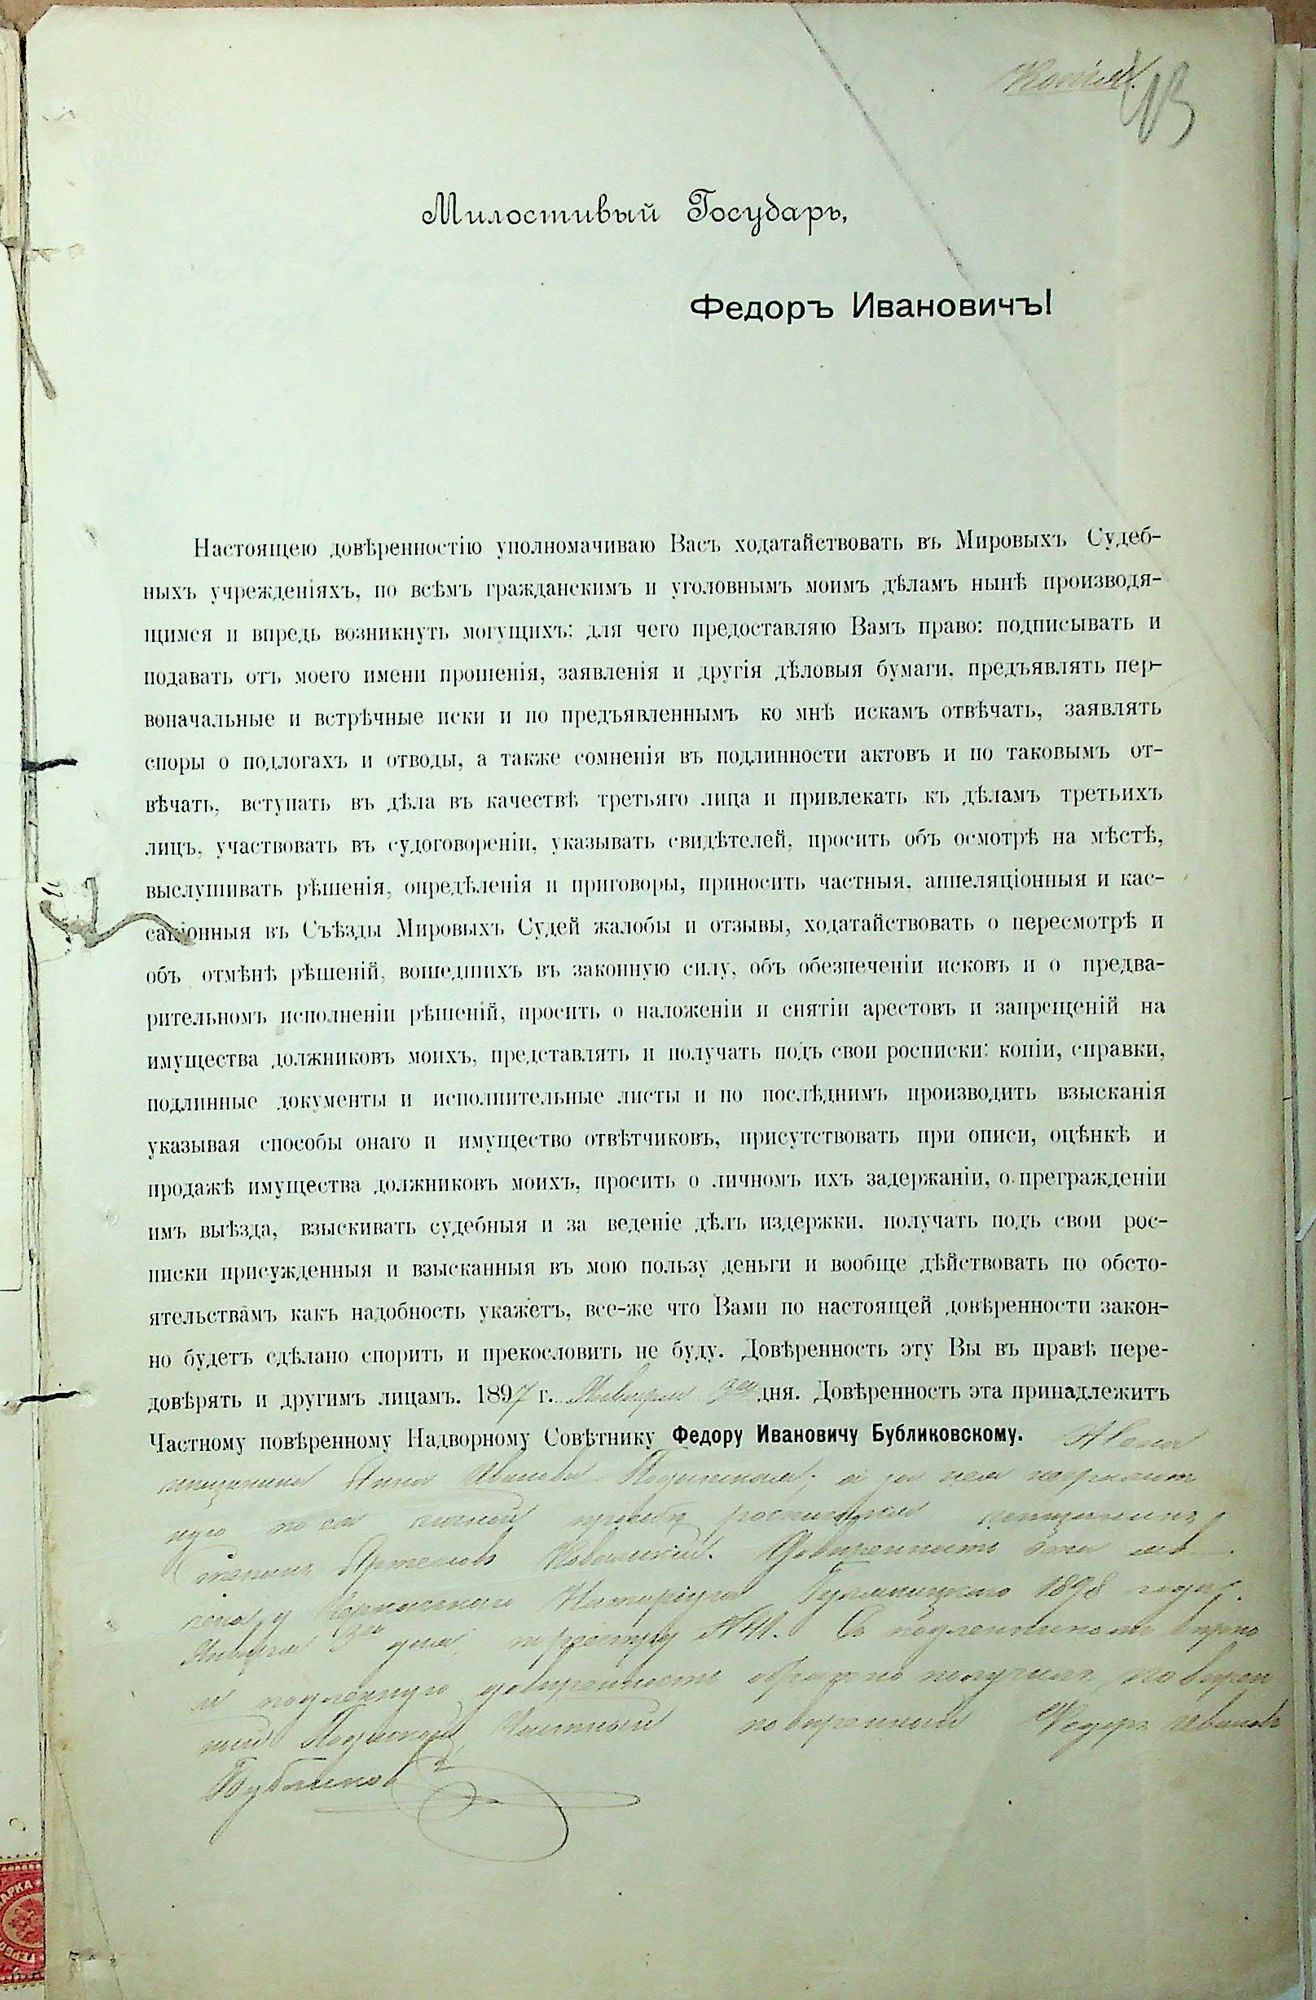 Копія.
Милостивый Государь,
Федоръ Ивановичъ!
Настоящею довѣренностію уполномачиваю Васъ ходатайствовать въ Мировыхъ Судеб-
ныхъ учрежденіяхъ, по всѣмъ гражданскимъ и уголовнымъ моимъ дѣламъ нынѣ производя-
щимся и впредь возникнуть могущихъ; для чего предоставляю Вамъ право: подписывать и
подавать отъ моего имени прошенія, заявленія и другія дѣловыя бумаги, предъявлять пер-
воначальные и встрѣчные иски и по предъявленнымъ ко мнѣ искамъ отвѣчать, заявлять
споры о подлогахъ и отводы, а также сомненія въ подлинности актовъ и по таковымъ от-
вѣчать, вступать въ дѣла въ качествѣ третьяго лица и привлекать къ дѣламъ третьихъ
лицъ, участвовать въ судоговореніи, указывать свидѣтелей, просить объ осмотрѣ на мѣстѣ,
выслушивать рѣшенія, опредѣленія и приговоры, приносить частныя, аппеляціонныя и кас-
саціонныя въ Съѣзды Мировыхъ Судей жалобы и отзывы, ходатайствовать о пересмотрѣ и
объ отмѣнѣ рѣшеній, вошедшихъ въ законную силу, объ обезпеченіи исковъ и о предва-
рительномъ исполненіи рѣшеній, просить о наложеніи и снятіи арестовъ и запрещеній на
имущества должниковъ моихъ, представлять и получать подъ свои росписки: копіи, справки,
подлинные документы и исполнительные листы и по послѣднимъ производить взысканія
указывая способы онаго и имущество отвѣтчиковъ, присутствовать при описи, оцѣнкѣ и
продажѣ имущества должниковъ моихъ, просить о личномъ ихъ задержаніи, о прегражденіи
имъ выѣзда, взыскивать судебныя и за веденіе дѣлъ издержки, получать подъ свои рос-
писки присужденныя и взысканныя въ мою пользу деньги и вообще дѣйствовать по обсто-
ятельствамъ какъ надобность укажетъ, все-же что Вами по настоящей довѣренности закон-
но будетъ сдѣлано спорить и прекословить не буду. Довѣренность эту Вы въ правѣ пере-
довѣрять и другимъ лицамъ. 1897 г. Января дня. Довѣренность эта принадлежитъ
Частному повѣренному Надворному Совѣтнику Федору Ивановичу Бубликовскому.
мѣщанка Анна Иванова а за нея неграмот
ную по ея личной просьбѣ росписался мѣщанинъ
Артемовъ Довѣренность эта
у Нотаріуса 1898 года
Января дня, по реестру № 41. Съ подлинникомъ вѣрно
и подлинную довѣренность обратно получилъ повѣрен
ный Частный повѣренный Федоръ Ивановъ
Бубликов